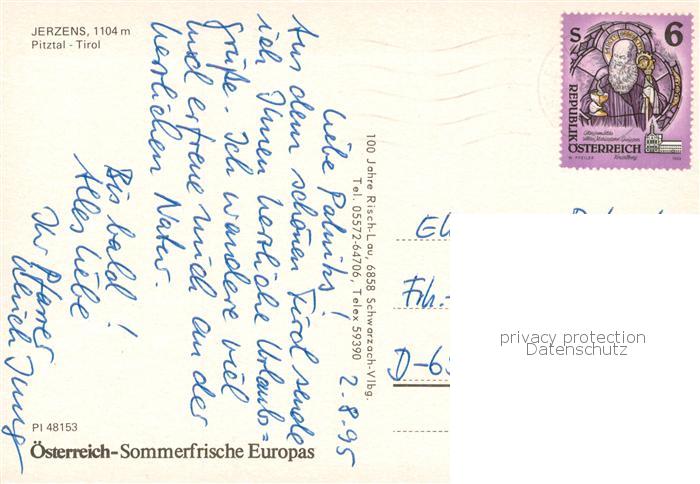 JERZENS, 1104 m
Pitztal - Tirol
Liebe Palmihs!
Aus dem schönen Tirol sende
ich Ihnen herzliche Urlaubs=
grüße. Ich wandere viel
und erfreue mich an der
herrlichen Natur.
Bis bald!
Alles Liebe
Ihr Pfarrer
Ulrich Jung
2.8.95
100 Jahre Risch-Lau, 6858 Schwarzach-Vlbg.
Tel. 05572-64706, Telex 59390
S 6
REPUBLIK
ÖSTERREICH
Eh
Frh.-
D-65
privacy protection
Datenschutz
PI 48153
Österreich-Sommerfrische Europas